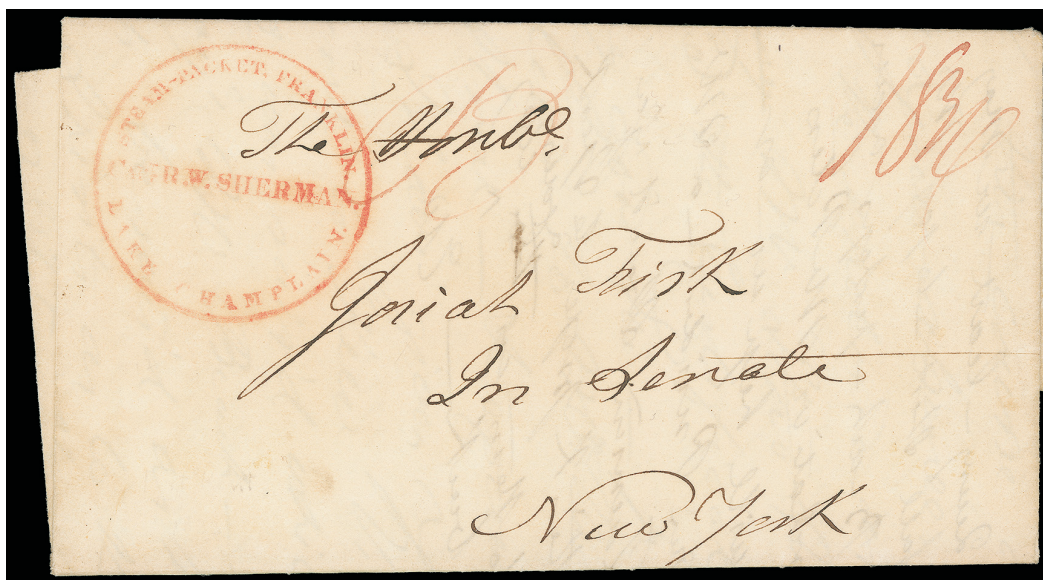 STEAM-PACKET. FRANKLIN.
CAPT R.W. SHERMAN.
LAKE CHAMPLAIN.
18¾
The Honble.
Josiah Fisk
In Senate
New York